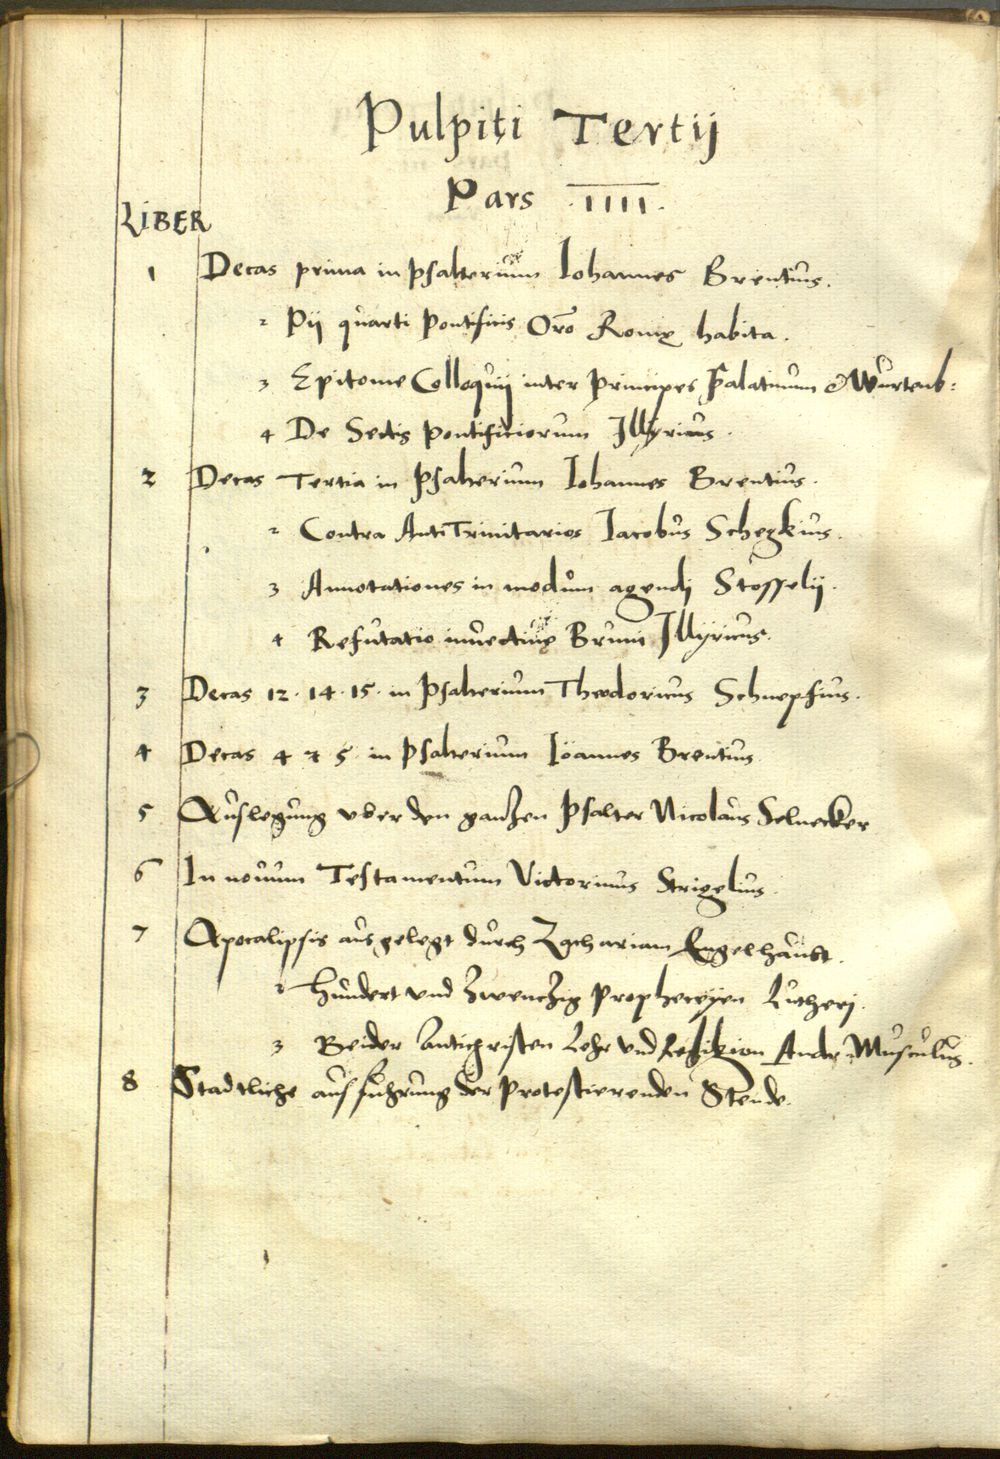 Pulpiti Tertij
Pars IIII.
LIBER
1 Decas prima in psalterium Iohannes Brentius.
2 Pij quarti Pontificis Oro Romę habita.
3 Epitome Colloquij inter Principes Palatinum & Wurtenb:
4 De Sectis Pontificiorum Illyricus.
2 Decas Tertia in Psalterium Iohannes Brentius.
2 Contra AntiTrinitarios Iacobus Schegkius.
3 Annotationes in modum agendj Stosselij.
4 Refutatio inuectiuę Bruni Illyricus.
3 Decas 12. 14. 15. in Psalterium Theodoricus Schnepfius.
4 Decas 4 & 5 in Psalterium Ioannes Brentius
5 Auslegung vber den ganzen Psalter Nicolaus Selnecker
6 In nouum Testamentum Victorinus Strigelius.
7 Apocalipsis ausgelegt durch Zachariam Engelhaubt.
2 hundert vnd zwenczig propheceyen Lutherj.
3 Beider Antichristen Lehr vnd Religion Andr. Musculus.
8 Stadtliche ausfuhrung der Protestierenden Stende.